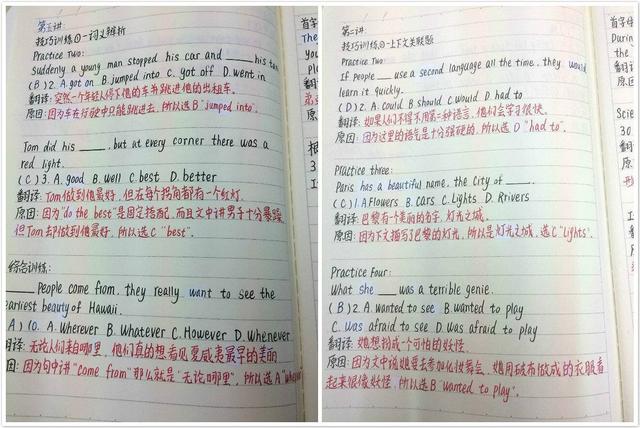 第五讲
技巧训练①-词义辨析
Practice Two:
Suddenly a young man stopped his car and ____ his tan
(B) 2. A.got on B.jumped into C. got off D.went in
翻译: 突然一个年轻人停下他的车并跳进他的出租车.
原因: 因为车在行驶中只能跳进去, 所以选B"jumped into".
Tom did his ____, but at every corner there was a
red light.
(C) 3. A. good B. well C. best D. better
翻译: Tom做到他最好, 但在每个拐角都有一个红灯.
原因: 因为"do the best"是固定搭配, 而且文中讲男子十分暴躁,
但Tom却做到他最好, 所以选C "best".
综合训练:
____ People come from, they really want to see the
earliest beauty of Hawaii.
A) 10. A. Wherever B. Whatever C.However D.Whenever
翻译: 无论人们来自哪里, 他们真的想看见夏威夷最早的美丽
原因: 因为句中讲"come from"那么就是"无论哪里", 所以选A
第二讲:
技巧训练②-上下文关联题
Practice Two:
If People ____ use a second language all the time, they would
learn it quickly.
(D) 2. A. Could B. should C. would D. had to
翻译: 如果人们不得不用第二种语言, 他们会学习很快.
原因: 因为这里的语气是十分强硬的, 所以选 D "had to".
Practice three:
Paris has a beautiful name, the City of ____.
(C) 1. A.Flowers B. Cars C. Lights D. Rrivers
翻译: 巴黎有个美丽的名字, 灯光之城.
原因: 因为下文描写了巴黎的灯光, 所以是灯光之城, 选C"Lights".
Practice Four:
What she ____ was a terrible genie.
(B) 2. A. wanted to see B. wanted to play
C. was afraid to see D. was afraid to play
翻译: 她想扮成一个可怕的妖怪.
原因: 因为文中说她要去参加化妆舞会, 她用破布做成的衣服看
起来很像妖怪, 所以选B "wanted to play".